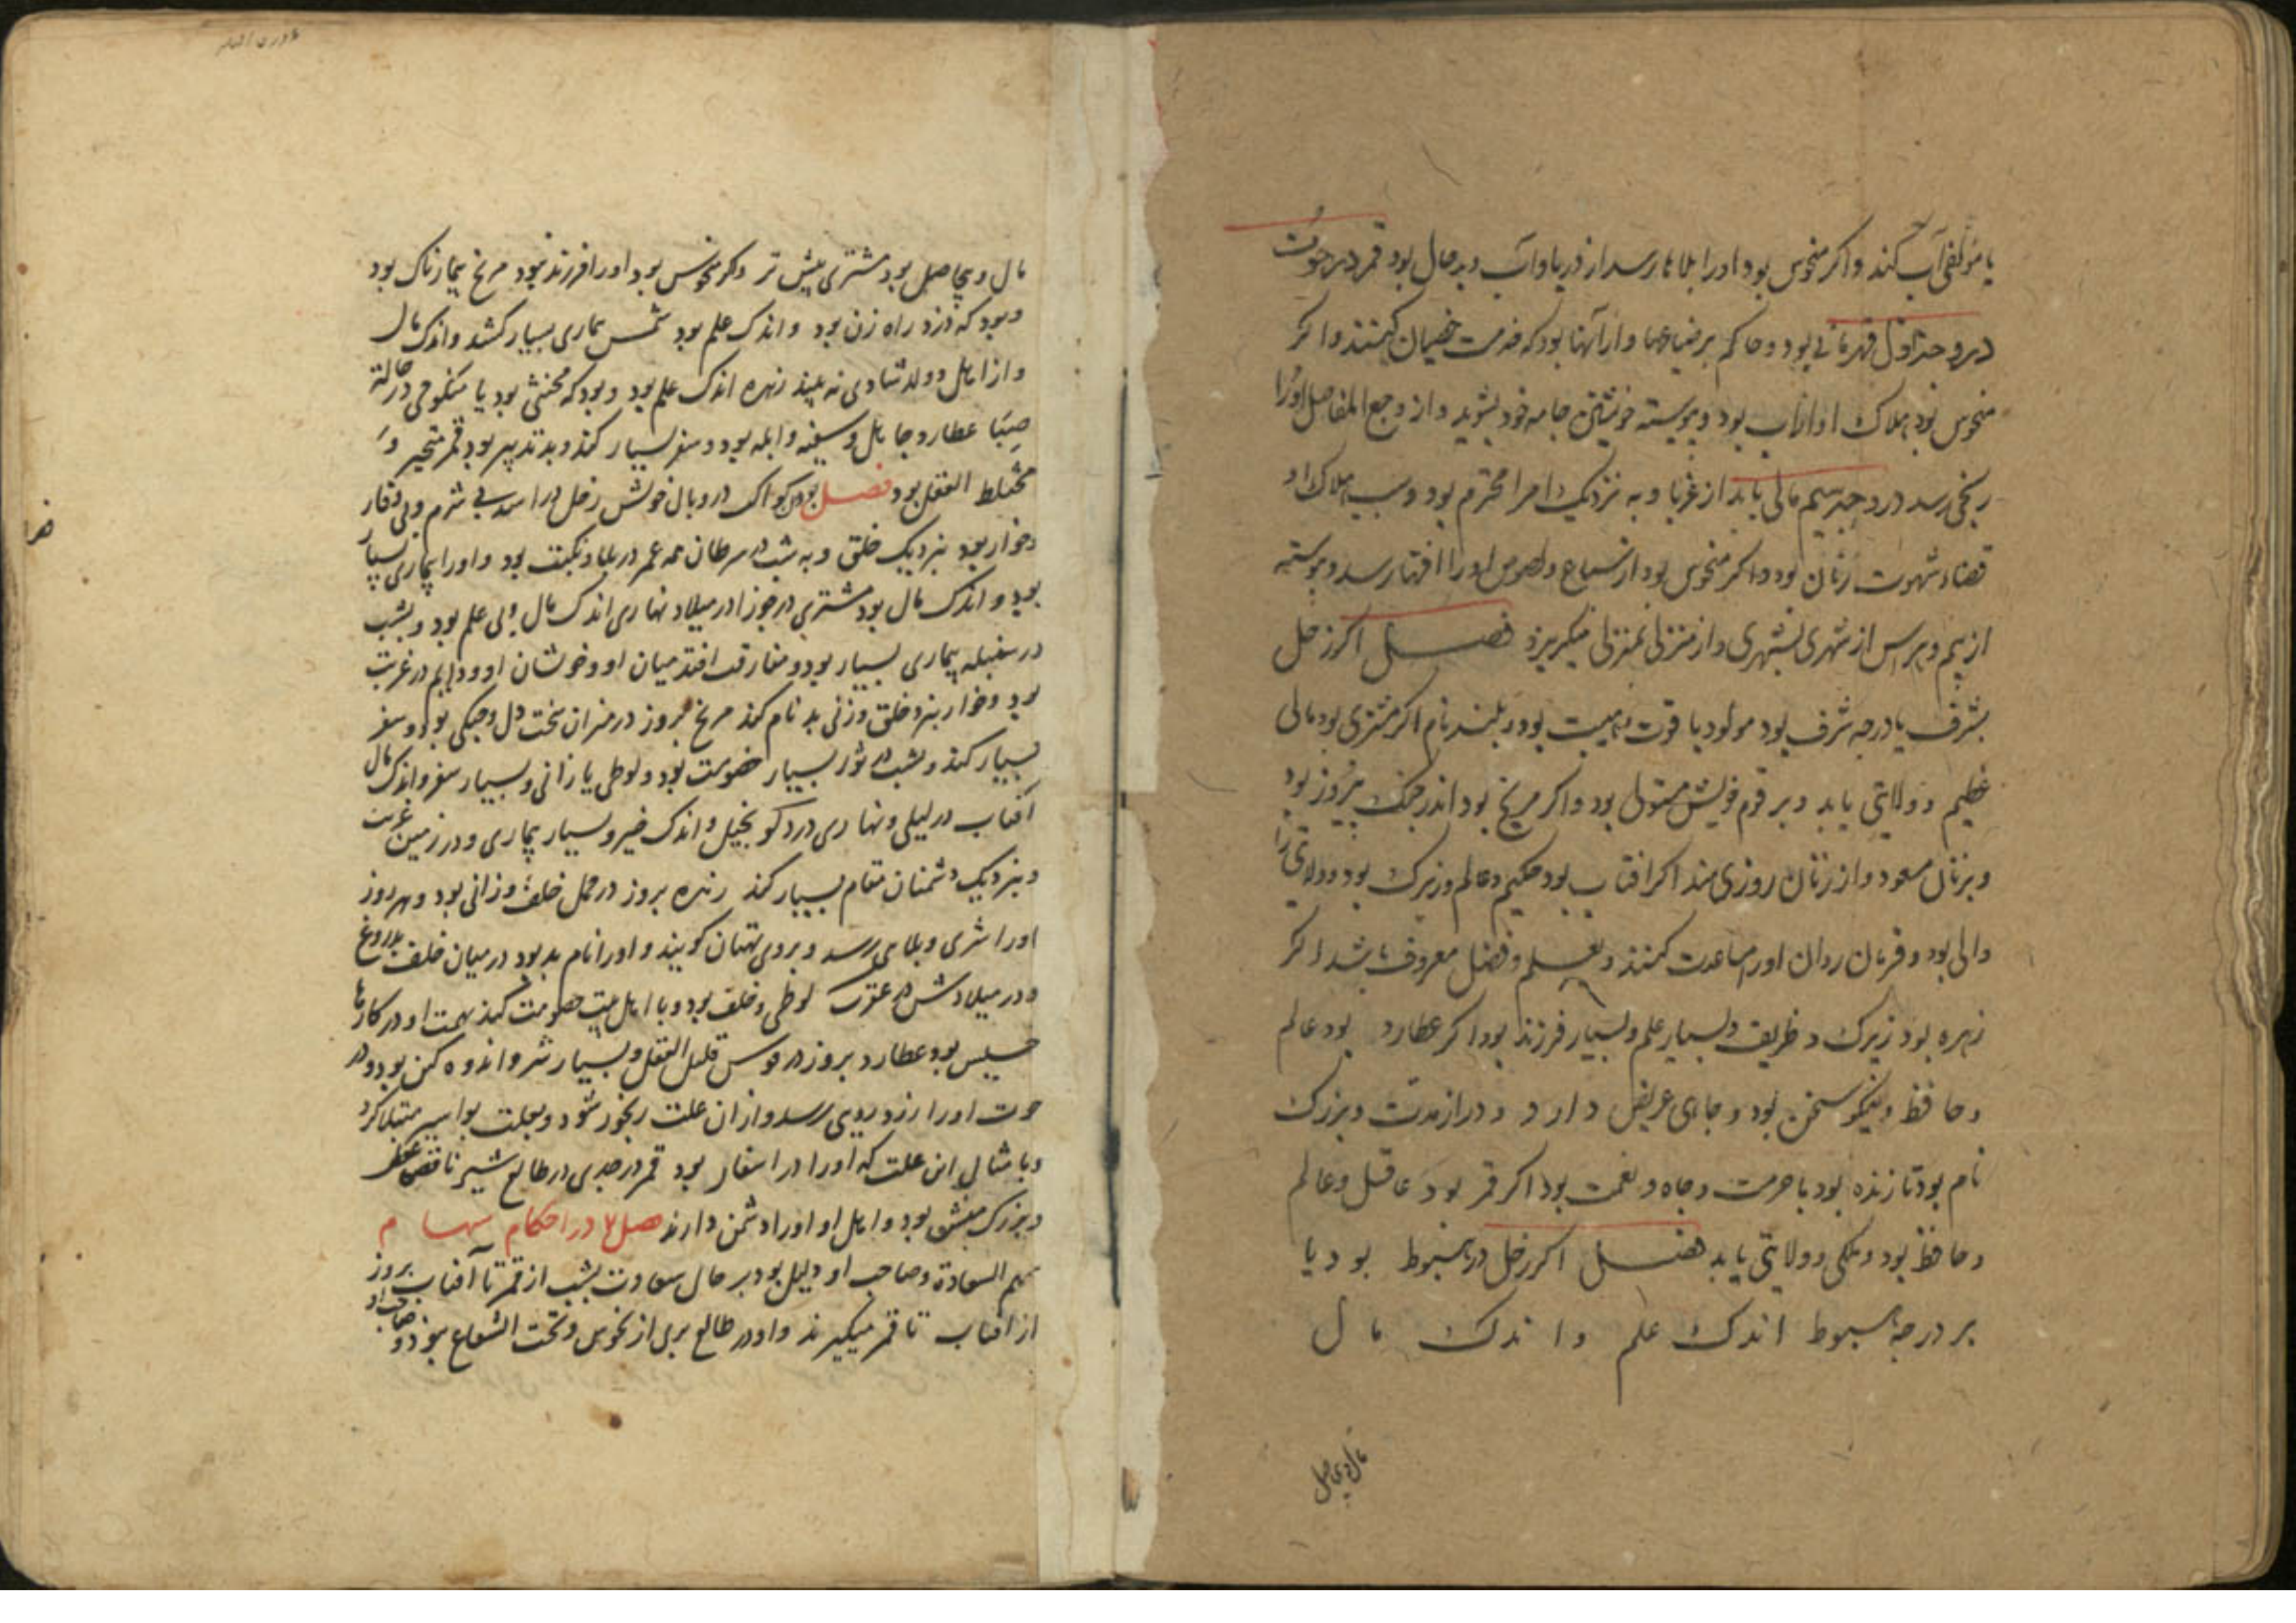 یا مولفی آب کند و اگر منحوس بود او را بلاها رسد از دریا و آب و بد حال بود قمر در حوت
در وجه اول قهرمانی بود و حاکم بر ضیاعها و از آنها بود که خدمت خصیان کنند و اگر
منحوس بود هلاک او از آب بود و پیوسته خویشتن جامه خود بشوید و از وجع المفاصل او را
رنجی رسد در وجه سیم مالی یابد از غربا و به نزدیک امرا محترم بود و سبب هلاک او
قضاء شهوت زنان بود و اگر منحوس بود از سباع و لصوص او را افتها رسد و پیوسته
از بیم و هراس از شهری بشهری و از منزلی بمنزلی میگریزد فصل اگر زحل
بشرف یا درجه شرف بود مولود با قوت و هیبت بود و بلند نام اگر مشتری بود مالی
عظیم و ولایتی یابد و بر قوم خویش مستولی بود و اگر مریخ بود اندر جنک پیروز بود
و بزنان مسعود و از زنان روزی مند اگر افتاب بود حکیم و عالم و زیرک بود و ولایتی را
والی بود و فرمان روان او را مساعدت کنند و بعلم و فضل معروف باشد اگر
زهره بود زیرک و ظریف و بسیار علم و بسیار فرزند بود اگر عطارد بود عالم
و حافظ و نیکو سخن بود و جاهی عریض دارد و دراز مدت و بزرک
نام بود تا زنده بود با حرمت و جاه و نعمت بود اگر قمر بود عاقل و عالم
و حافظ بود و ملکی و ولایتی یابد فصل اگر زحل در هبوط بود یا
بر درجه هبوط اندک علم و اندک مال
مال و بی حاصل
مال و بیحاصل بود مشتری پیش تر و کر منحوس بود او را فرزند نبود مریخ بیمارناک بود
و بود که دزد راه زن بود و اندک علم بود شمس بیماری بسیار کشد و اندک مال
و از اهل و ولد شادی نه بیند زهره اندک علم بود و بود که مخنثی بود یا منکوحی در حالة
صبا عطارد جاهل و سفیه و ابله بود و سفر بسیار کند و بد تدبیر بود قمر متحیر و
مختلط العقل بود فصل بودن کواکب در وبال خویش زحل در اسد بی شرم و بی وقار
و خوار بود بنزدیک خلق و به شب در سرطان همه عمر در بلا و نکبت بود و او را بیماری بسیار
بود و اندک مال بود مشتری در جوزا در میلاد نهاری اندک مال و بی علم بود و بشب
در سنبله بیماری بسیار بود و مفارقت افتد میان او و خویشان او و دایم در غربت
بود و خوار بنزد خلق و زنی بد نام کند مریخ بروز در میزان سخت دل و جنکی بود و سفر
بسیار کند و بشب در ثور بسیار خصومت بود و لوطی یا زانی و بسیار سفر و اندک مال
آفتاب در لیلی و نهاری در دلو بخیل و اندک خیر و بسیار بیماری و در زمین غربت
و بنزدیک دشمنان مقام بسیار کند زهره بروز در حمل خلف و زانی بود و بهر روز
او را شری و بلای رسد و بروی بهتان کویند و او را نام بد بود در میان خلق بدروغ
و در میلاد شب در عقرب لوطی و خلف بود و با اهل بیت خصومت کند همت او در کارها
خسیس بود عطارد بروز در قوس قلیل العقل و بسیار شر و اندوه کن بود و در
حوت او را از دردی رسد و از آن علت رنجور شود و بعلت بواسیر مبتلا کرد
و بامثال این علت که او را در اسفار بود قمر در جدی در طالع شیر ناقص عقل
و بزرک منش بود و اهل او او را دشمن دارند فصل ۷ در احکام سهام
سهم السعادة و صاحب او دلیل بود بر حال سعادت بشب از قمر تا آفتاب بروز
از افتاب تا قمر میگیرند و او در طالع بری از نحوس و تحت الشعاع بود و صاحب او